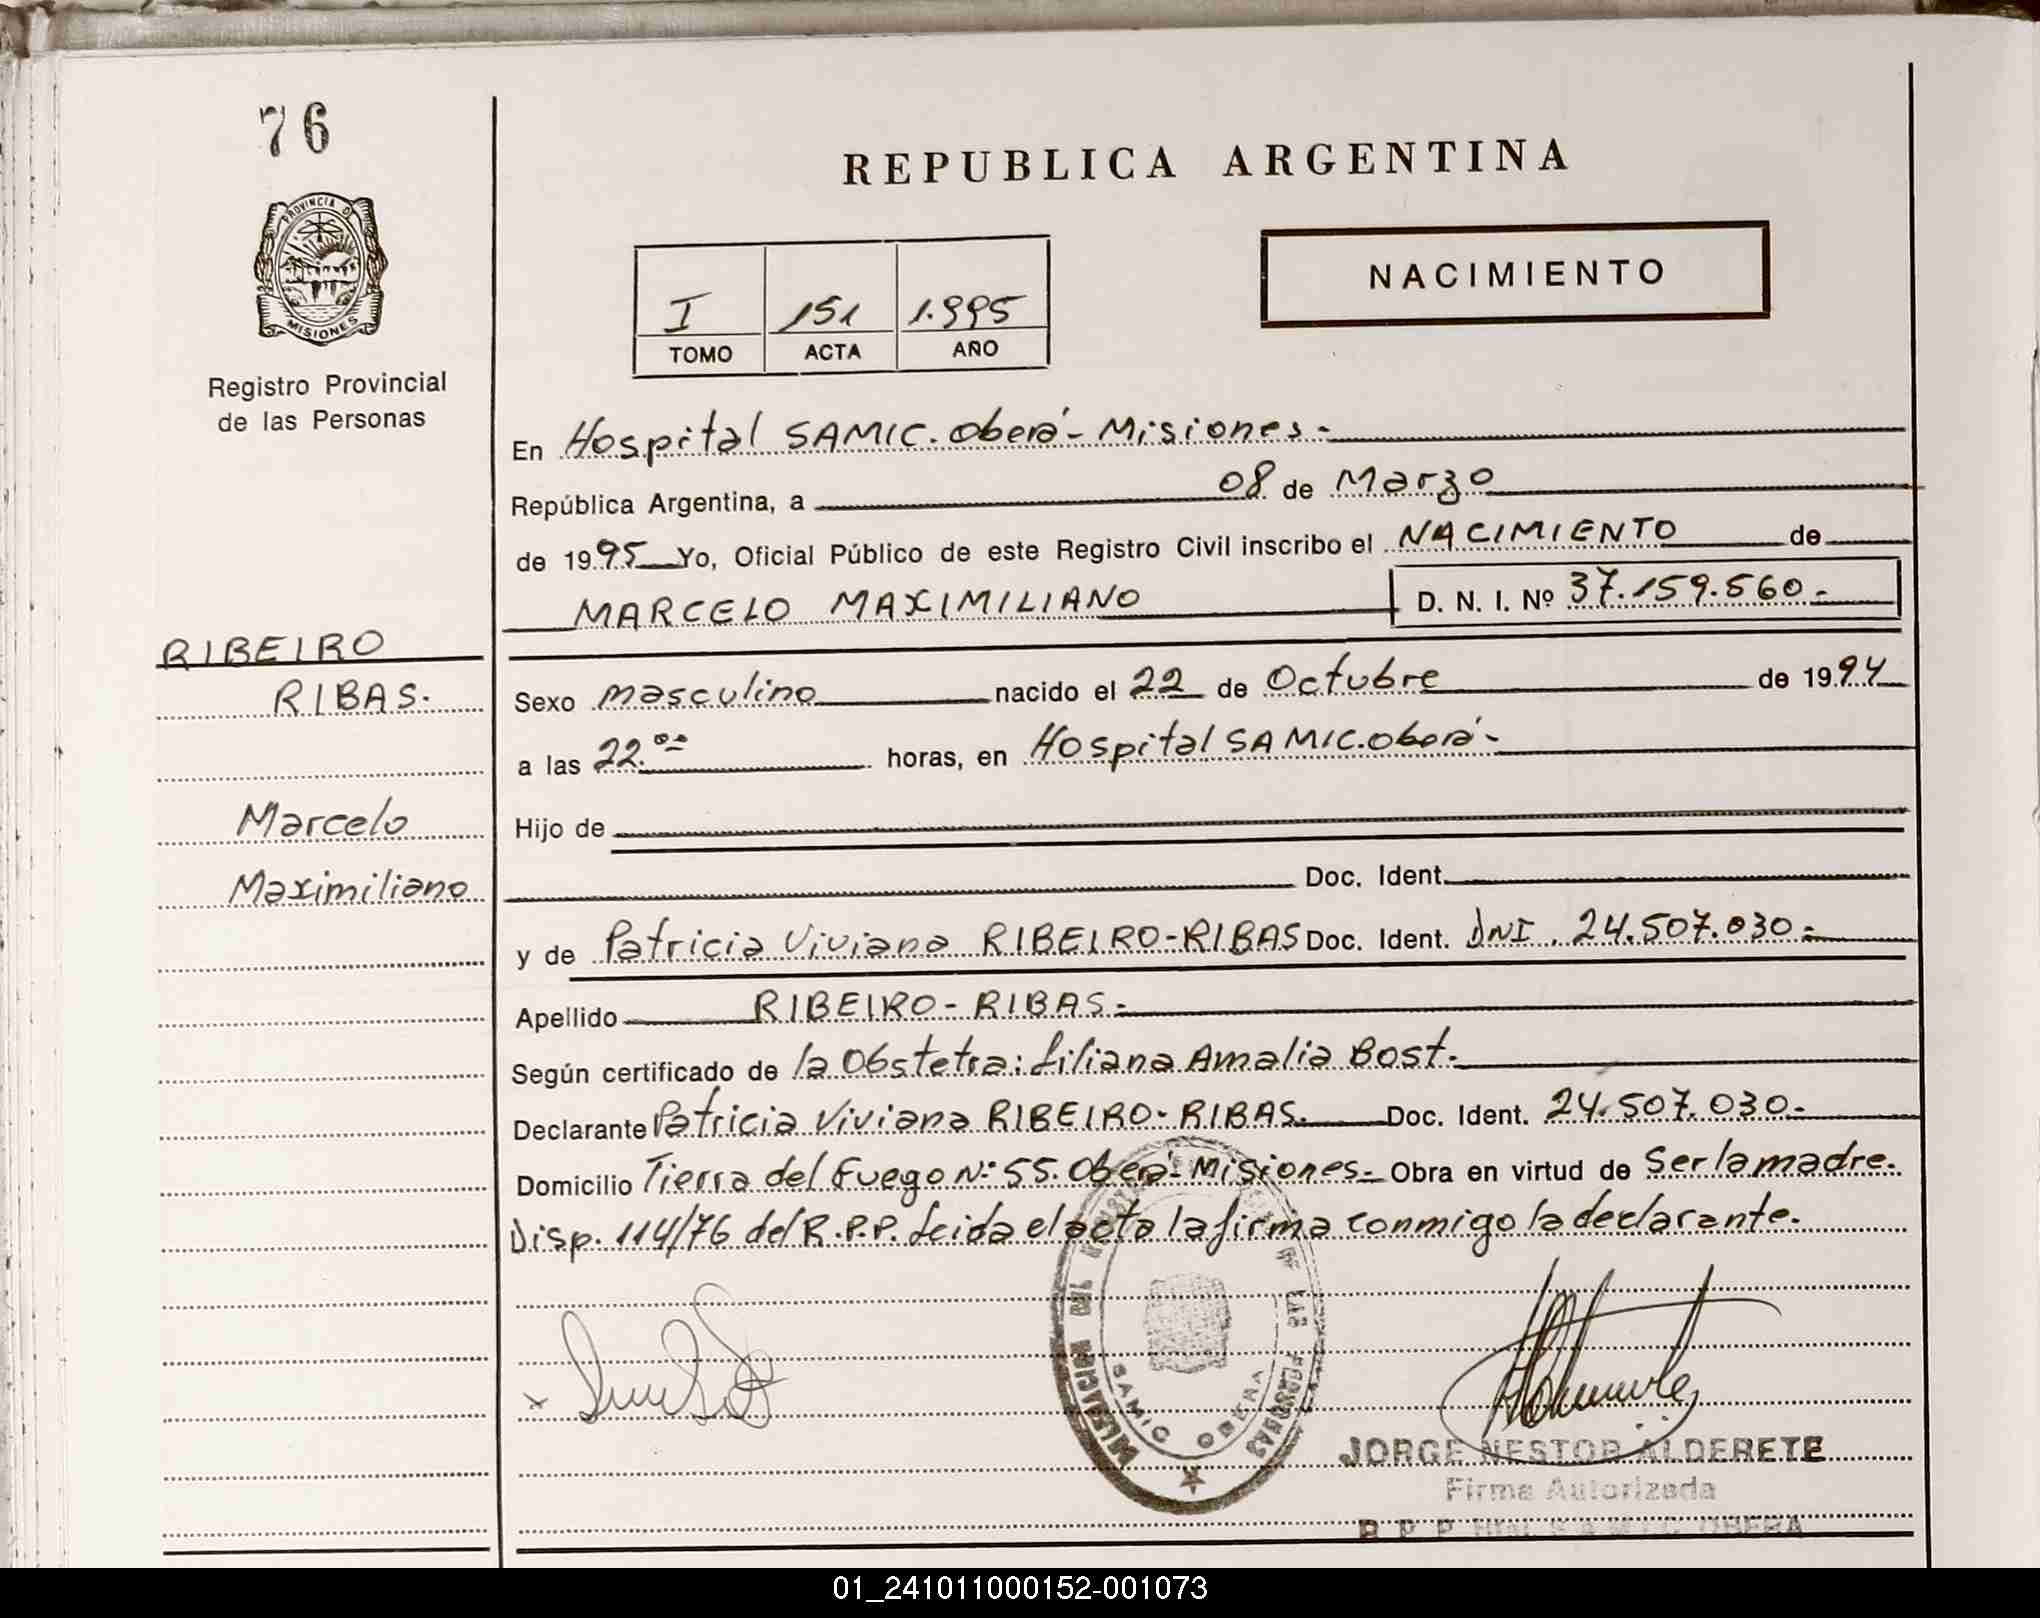 76
PROVINCIA DE
MISIONES
Registro Provincial
de las Personas
RIBEIRO
RIBAS.
Marcelo
Maximiliano
REPUBLICA ARGENTINA
NACIMIENTO
I 151 1.995
TOMO ACTA AÑO
En Hospital SAMIC. Oberá - Misiones -
República Argentina, a 08 de Marzo
de 1995 Yo, Oficial Público de este Registro Civil inscribo el NACIMIENTO de
MARCELO MAXIMILIANO D. N. I. Nº 37.159.560.-
Sexo masculino nacido el 22 de Octubre de 1994
a las 22.00 horas, en Hospital SAMIC. Oberá -
Hijo de
Doc. Ident.
y de Patricia Viviana RIBEIRO-RIBAS Doc. Ident. DNI. 24.507.030.-
Apellido RIBEIRO - RIBAS.-
Según certificado de la Obstetra: Liliana Amalia Bost.-
Declarante Patricia Viviana RIBEIRO - RIBAS. Doc. Ident. 24.507.030-
Domicilio Tierra del Fuego Nº 55. Oberá - Misiones - Obra en virtud de Ser la madre.
Disp. 114/76 del R.P.P. Leida el acta la firma conmigo la declarante.
SAMIC OBERA
PERSONAS
JORGE NESTOR ALDERETE
Firma Autorizada
R. P. P. Htal. S.A.M.I.C. OBERA
01_241011000152-001073